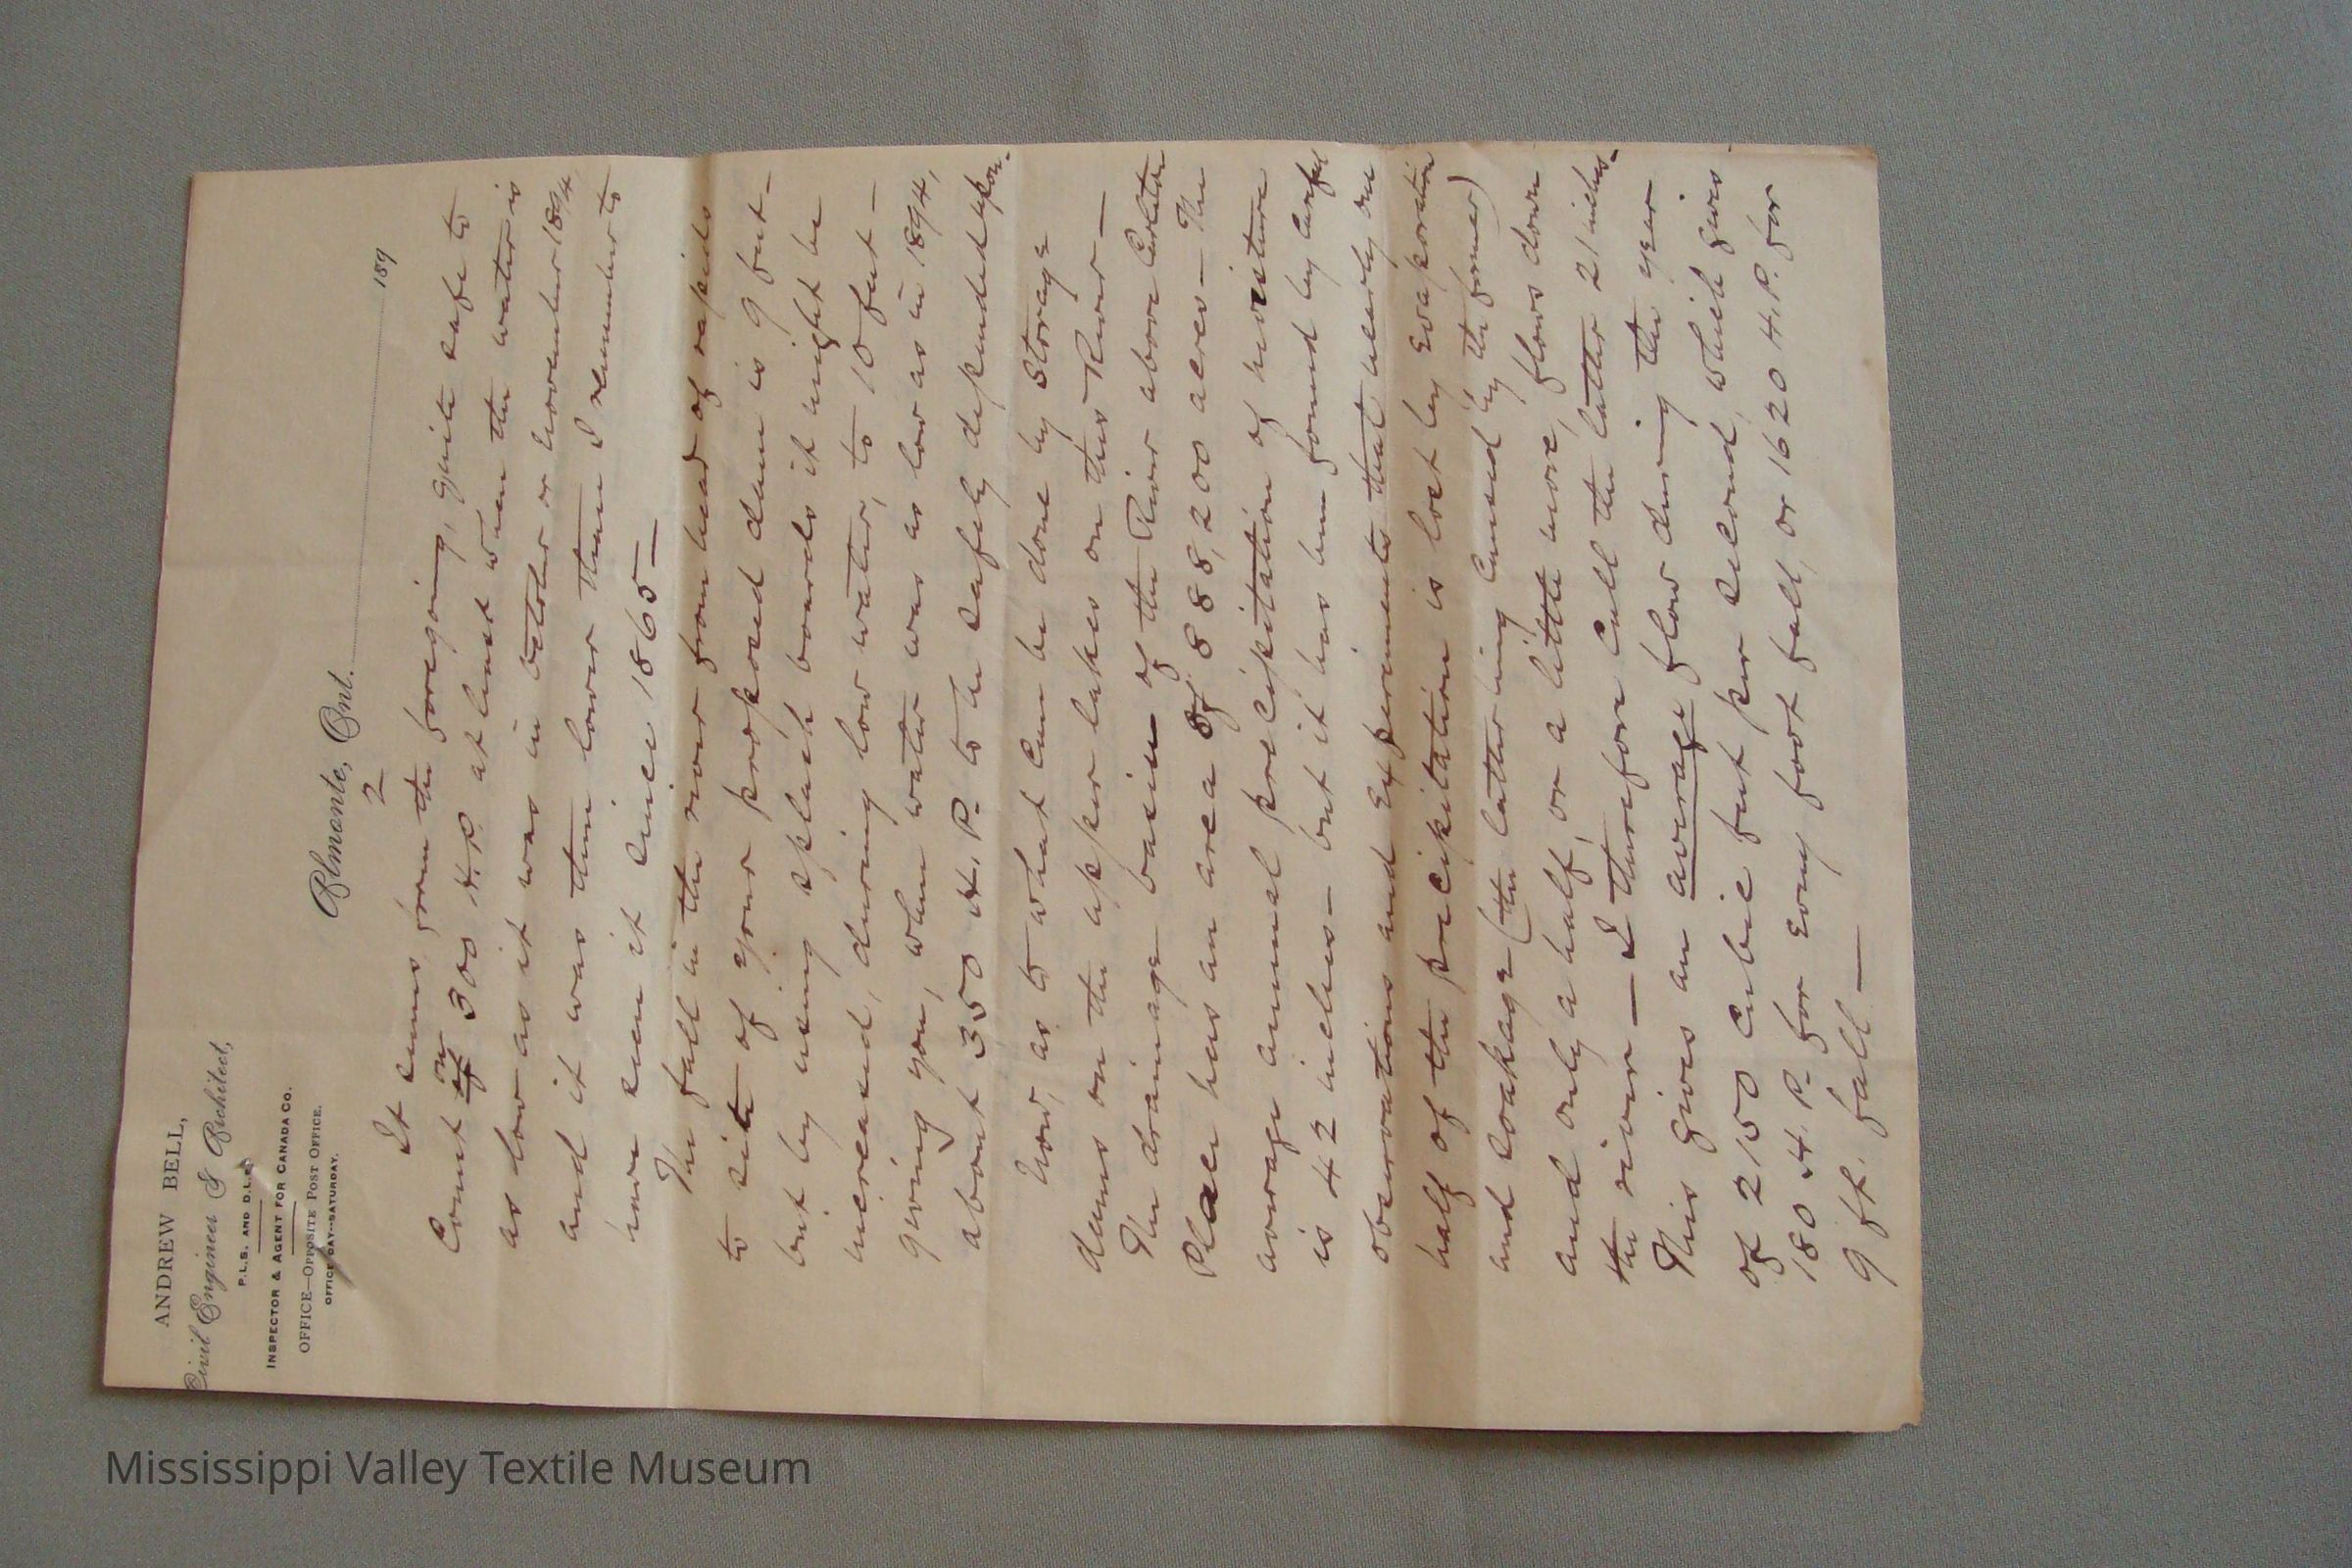 ANDREW BELL,
Civil Engineer & Architect,
P.L.S. AND D.L.S.
INSPECTOR & AGENT FOR CANADA CO.
OFFICE—OPPOSITE POST OFFICE.
OFFICE DAY—SATURDAY.
Almonte, Ont. 189
2
It seems from the foregoing, quite safe to
on
Count of 300 H.P. at least when the water is
as low as it was in October or November 1894,
and it was then lower than I remember to
have seen it since 1865—
The fall in the river from head of rapids
to site of your proposed dam is 9 feet—
but by using splash boards it might be
increased, during low water, to 10 feet—
giving you, when water was as low as in 1894,
about 350 H.P. to be safely depended upon.
Now, as to what can be done by Storage
dams on the upper lakes on this River—
The drainage basin of the River above Carleton
Place has an area of 888,200 acres— The
average annual precipitation of moisture
is 42 inches— but it has been found by careful
observations and Experiments that nearly one
half of the precipitation is lost by Evaporation
and soakage (the latter being Caused by the former)
and only a half, or a little more, flows down
the river— I therefore Call the latter 21 inches—
This gives an average flow during the year
of 2150 Cubic feet per second, which gives
180 H.P. for Every foot fall, or 1620 H.P. for
9 ft. fall—
Mississippi Valley Textile Museum